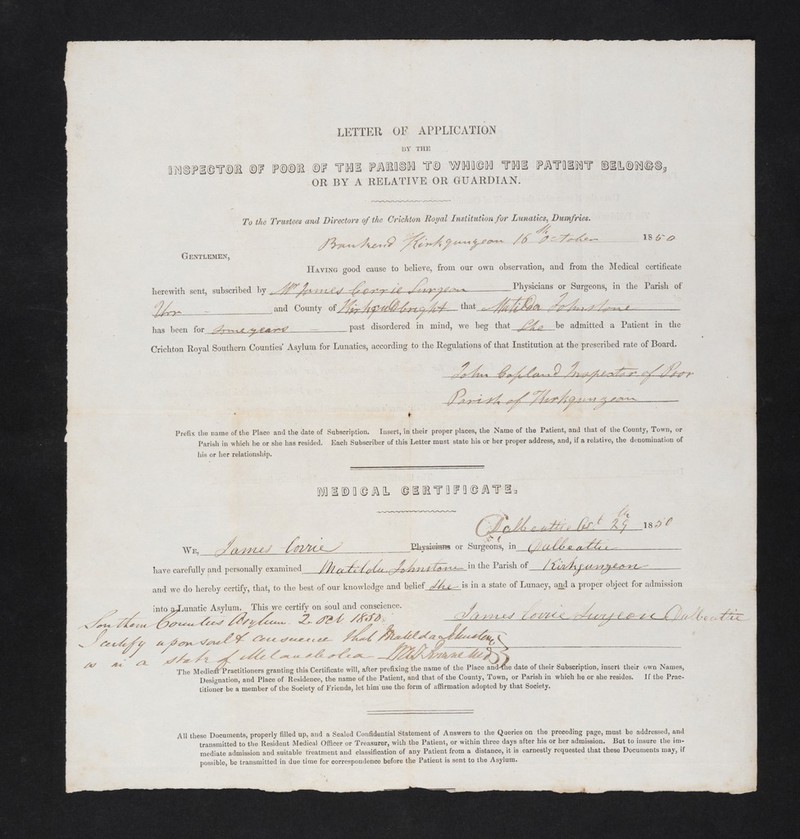 LETTER OF APPLICATION
BY THE
INSPECTOR OF POOR OF THE PARISH TO WHICH THE PATIENT BELONGS,
OR BY A RELATIVE OR GUARDIAN.
To the Trustees and Directors of the Crichton Royal Institution for Lunatics, Dumfries.
Bankend Kirkgunzeon 16th October 1850
GENTLEMEN,
HAVING good cause to believe, from our own observation, and from the Medical certificate
herewith sent, subscribed by Mr James Corrie Surgeon Physicians or Surgeons, in the Parish of
Urr and County of Kirkcudbright that Matilda Johnstone
has been for some years past disordered in mind, we beg that She be admitted a Patient in the
Crichton Royal Southern Counties' Asylum for Lunatics, according to the Regulations of that Institution at the prescribed rate of Board.
John Copland Inspector of Poor
Parish of Kirkgunzeon
Prefix the name of the Place and the date of Subscription. Insert, in their proper places, the Name of the Patient, and that of the County, Town, or
Parish in which he or she has resided. Each Subscriber of this Letter must state his or her proper address, and, if a relative, the denomination of
his or her relationship.
MEDICAL CERTIFICATE.
Dalbeattie Oct 29th 1850
WE, James Corrie Physicians or Surgeons, in Dalbeattie
have carefully and personally examined Matilda Johnstone in the Parish of Kirkgunzeon
and we do hereby certify, that, to the best of our knowledge and belief she is in a state of Lunacy, and a proper object for admission
into a Lunatic Asylum. This we certify on soul and conscience.
James Corrie Surgeon Dalbeattie
Southern Counties Asylum 2. Oct 1850.
I certify upon soul & conscience that Matilda Johnstone
is in a state of Melancholia
The Medical Practitioners granting this Certificate will, after prefixing the name of the Place and the date of their Subscription, insert their own Names,
Designation, and Place of Residence, the name of the Patient, and that of the County, Town, or Parish in which he or she resides. If the Prac-
titioner be a member of the Society of Friends, let him use the form of affirmation adopted by that Society.
All these Documents, properly filled up, and a Sealed Confidential Statement of Answers to the Queries on the preceding page, must be addressed, and
transmitted to the Resident Medical Officer or Treasurer, with the Patient, or within three days after his or her admission. But to insure the im-
mediate admission and suitable treatment and classification of any Patient from a distance, it is earnestly requested that these Documents may, if
possible, be transmitted in due time for correspondence before the Patient is sent to the Asylum.